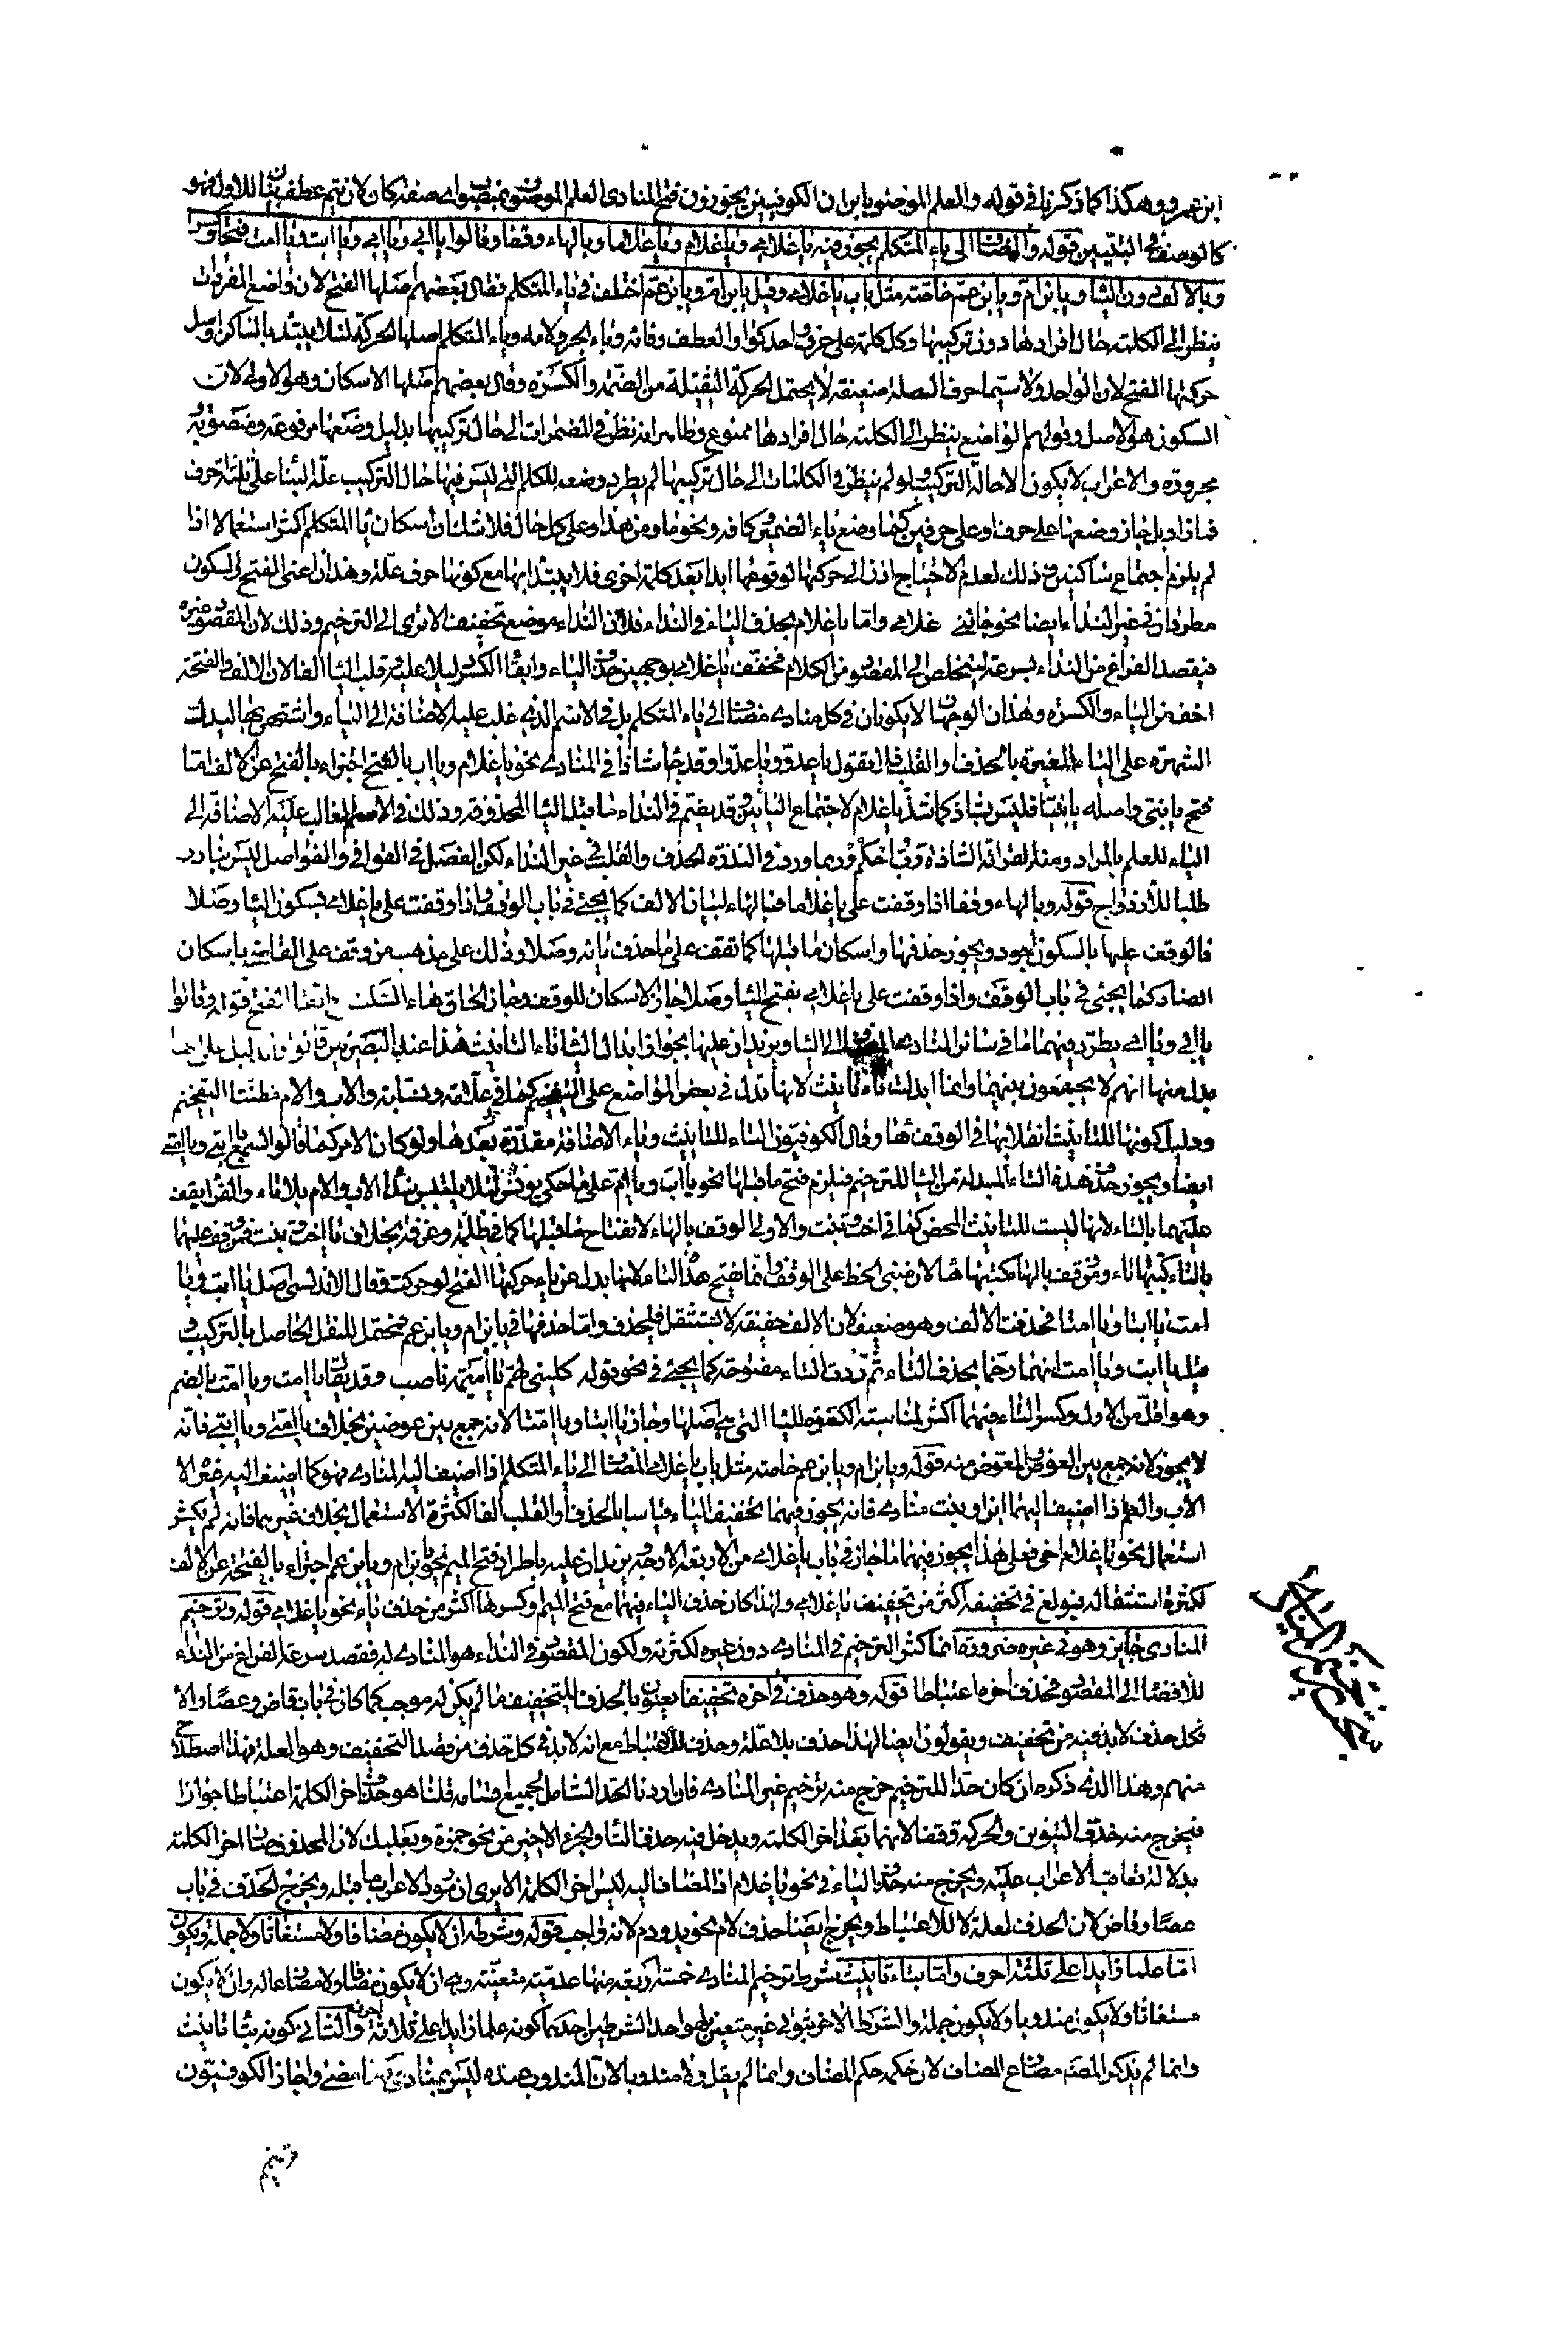 ابن عمرو وهكذا كما ذكرنا في قوله والعلم الموصوف بابن ان الكوفيين يجوزون فتح المنادى العلم الموصوف بمنصوب اي صفة كان لان تتم عطف بيانا للاول فهو
كالوصف في التبيين قوله والمضاف الى ياء المتكلم يجوز فيه يا غلامي ويا غلام ويا غلاما وبالهاء وقفا وقالوا يا ابي ويا امي ويا ابت ويا امت فتحا وكسرا
وبالالف دون اليا ويا بن ام ويا بن عم خاصة مثل باب يا غلامي وقيل يا بن ام ويا بن عم اختلف في ياء المتكلم فقال بعضهم اصلها الفتح لان واضع المفردات
ينظر الى الكلمة حال افرادها دون تركيبها وكل كلمة على حرف واحد كواو العطف وفائه وباء الجر ولامه وياء المتكلم اصلها الحركة لئلا يبتدأ بالساكن واصل
حركتها الفتح لان الواحد ولا سيما حرف العلة ضعيفة لا يحتمل الحركة الثقيلة من الضمة والكسرة وقال بعضهم اصلها الاسكان وهو الاولى لان
السكون هو الاصل وقولهم الواضع ينظر الى الكلمة حال افرادها ممنوع وظاهر انه نظر في المضمرات الى حال تركيبها بدليل وضعها مرفوعة ومنصوبة
مجرورة والاعراب لا يكون الا حالة التركيب ولو لم ينظر في الكلمات الى حال تركيبها لم يطرد وضعه للكلم التي ليس فيها حال التركيب علة البنا على ثلثة احرف
فما زاد بل جاز وضعها على حرف او على حرفين كما وضع ياء الضمير وكافه ونحو ما ومن هذا وعلى كل حال فلا شك ان اسكان يا المتكلم اكثر استعمالا اذا
لم يلزم اجتماع ساكنين وذلك لعدم الاحتياج اذن الى حركتها لوقوعها ابدا بعد كلمة اخرى فلا يبتدأ بها مع كونها حرف علة وهذان اعنى الفتح والسكون
مطردان في غير النداء ايضا نحو جاءني غلامي واما يا غلام بحذف الياء في النداء فلان النداء موضع تخفيف الا ترى الى الترخيم وذلك لان المقصود غيره
فيقصد الفراغ من النداء بسرعة ليتخلص الى المقصود من الكلام فخفف يا غلامي بوجهين حذف الياء وابقاء الكسر دليلا عليه وقلب اليا الفا لان الالف والفتحة
اخف من الياء والكسرة وهذان الوجهان لا يكونان في كل منادى مضاف الى ياء المتكلم بل في الاسم الذي غلب عليه الاضافة الى الياء واشتهر بها ليدل
الشهرة على الياء المغيرة بالحذف او القلب فلا تقول يا عدو ويا عدوا وقد جاء شاذا في المنادى نحو يا غلام ويا اب بالفتح اجتزاء بالفتح عن الالف اما
فتح يا بني واصله يا بنيا فليس بشاذ كما شذ يا غلام لاجتماع اليائين وقد يضم في النداء ما قبل اليا المحذوفة وذلك في الاسم الغالب عليه الاضافة الى
الياء للعلم بالمراد ومنه القراءة الشاذة رب احكم وربما ورد في الندرة الحذف والقلب في غير النداء لكن الفصل في القوافي والفواصل ليس بنادر
طلبا للازدواج قوله وبالهاء وقفا اذا وقفت على يا غلاما فبالهاء لبيان الالف كما يجئ في باب الوقف واذا وقفت على يا غلامي بسكون اليا وصلا
فالوقف عليها بالسكون اجود ويجوز حذفها واسكان ما قبلها كما تقف على ما حذف يائه وصلا وذلك على مذهب من وقف على القاضي باسكان
الضاد كما يجئ في باب الوقف واذا وقفت على يا غلامي بفتح اليا وصلا جاز الاسكان للوقف وجاز الحاق هاء السكت مع ابقاء الفتح قوله وقالوا
يا ابي ويا امي يطرد فيهما ما في سائر المنادى المضاف الى اليا ويزيدان عليها بجواز ابدال اليا تاء التانيث هذا عند البصريين قالوا والدليل على انها
بدل منها انهم لا يجمعون بينهما وانما ابدلت تاء تانيث لانها تدل في بعض المواضع على التفخيم كما في علامة ونسابة والاب والام مظنتا التفخيم
ودليل كونها للتانيث انقلابها في الوقف هاء وقال الكوفيون التاء للتانيث وياء الاضافة مقدرة بعدها ولو كان الامر كما قالوا لسمع يا ابتي ويا امتي
ايضا ويجوز حذف هذه التاء المبدلة من اليا للترخيم فيلزم فتح ما قبلها نحو يا اب ويا ام على ما حكى يونس لئلا يلتبس بنداء الاب والام بلا تاء والفراء يقف
عليهما بالتاء لانها ليست للتانيث المحض كما في اخت وبنت والاولى الوقف بالهاء لانفتاح ما قبلها كما في ظلمة وغرفة بخلاف تا اخت وبنت فمن وقف عليهما
بالتاء كتبها تاء ومن وقف بالهاء كتبها هاء لان مبنى الخط على الوقف وانما فتح هذه التاء لانها بدل عن ياء حركتها الفتح لو حركت وقال الاندلسي اصل يا ابت ويا
امت يا ابتا ويا امتا فحذفت الالف وهو ضعيف لان الالف خفيفة لا تستثقل فتحذف واما حذفها في يا بن ام ويا بن عم فيحتمل للثقل الحاصل بالتركيب وقيل
مثله يا ابت ويا امت انهما رخما بحذف التاء ثم زدت التاء مفتوحة كما يجئ في نحو قوله كليني لهم يا اميمة ناصب وقد يقال يا امت ويا امت بالضم
وهو اقل من الاول وكسر التاء فيهما اكثر لمناسبة الكسرة للياء التي هي اصلها وجاز يا ابتا ويا امتا لانه جمع بين عوضين بخلاف يا امتي ويا ابتي فانه
لا يجوز لانه جمع بين العوض والمعوض منه قوله ويا بن ام ويا بن عم خاصة مثل باب يا غلامي المضاف الى ياء المتكلم اذا اضيف اليه المنادى فهو كما اضيف اليه غير الا
الاب والعم اذا اضيف اليهما ابن او بنت منادى فانه يجوز فيهما تخفيف الياء قياسا بالحذف او القلب الفا لكثرة الاستعمال بخلاف غيرهما فانه لم يكثر
استعمال نحو يا غلام اخي فعلى هذا يجوز فيهما ما جاز في باب يا غلامي من الاربعة الاوجه ويزيدان عليه باطراد فتح الميم نحو يا بن ام ويا بن عم اجتزاء بالفتحة عن الالف
لكثرة استثقاله فبولغ في تخفيفه اكثر من تخفيف يا غلامي ولهذا كان حذف الياء فيهما مع فتح الميم وكسرها اكثر من حذف ياء نحو يا غلامي قوله وترخيم
المنادى جايز وهو في غيره ضرورة انما كثر الترخيم في المنادى دون غيره لكثرته ولكون المقصود في النداء هو المنادى له فقصد بسرعة الفراغ من النداء
للافضاء الى المقصود فحذف اخره اعتباطا قوله وهو حذف في اخره تخفيفا يعنون بالحذف للتخفيف ما لم يكن له موجب كما كان في باب قاض وعصا والا
فكل حذف لا بد فيه من تخفيف ويقولون ايضا لهذا حذف بلا علة وحذف للاعتباط مع انه لا بد في كل حذف من قصد التخفيف وهو العلة فهذا اصطلاح
منهم وهذا الذي ذكره ان كان حدا للترخيم خرج منه ترخيم غير المنادى فان اردنا الحد الشامل لجميع اقسامه قلنا هو حذف اخر الكلمة اعتباطا جوازا
فيخرج منه حذف التنوين والحركة وقفا لانهما بعد اخر الكلمة ويدخل فيه حذف التا والجزء الاخير من نحو حمزة وبعلبك لان المحذوف صار اخر الكلمة
بدلالة تعاقب الاعراب عليه ويخرج منه حذف الياء في نحو يا غلام اذ المضاف اليه ليس اخر الكلمة الا يرى ان مورد الاعراب ما قبله ويخرج الحذف في باب
عصا وقاض لان الحذف لعلة لا للاعتباط ويخرج ايضا حذف لام نحو يد ودم لانه واجب قوله وشرطه ان لا يكون مضافا ولا مستغاثا ولا جملة ويكون
اما علما زايدا على ثلثة احرف واما بتاء تانيث شرط ترخيم المنادى خمسة اربعة منها عدمية متعينة وهي ان لا يكون مضافا ولا مضارعا له وان لا يكون
مستغاثا ولا يكون مندوبا ولا يكون جملة والشرط الاخر ثبوتي غير متعين بل هو احد الشرطين احدهما كونه علما زايدا على ثلاثة احرف والثاني كونه بتا تانيث
وانما لم يذكر المصنف مضارع المضاف لان حكمه حكم المضاف وانما لم يقل ولا مندوبا لان المندوب عنده ليس بمنادى كما مضى واجاز الكوفيون